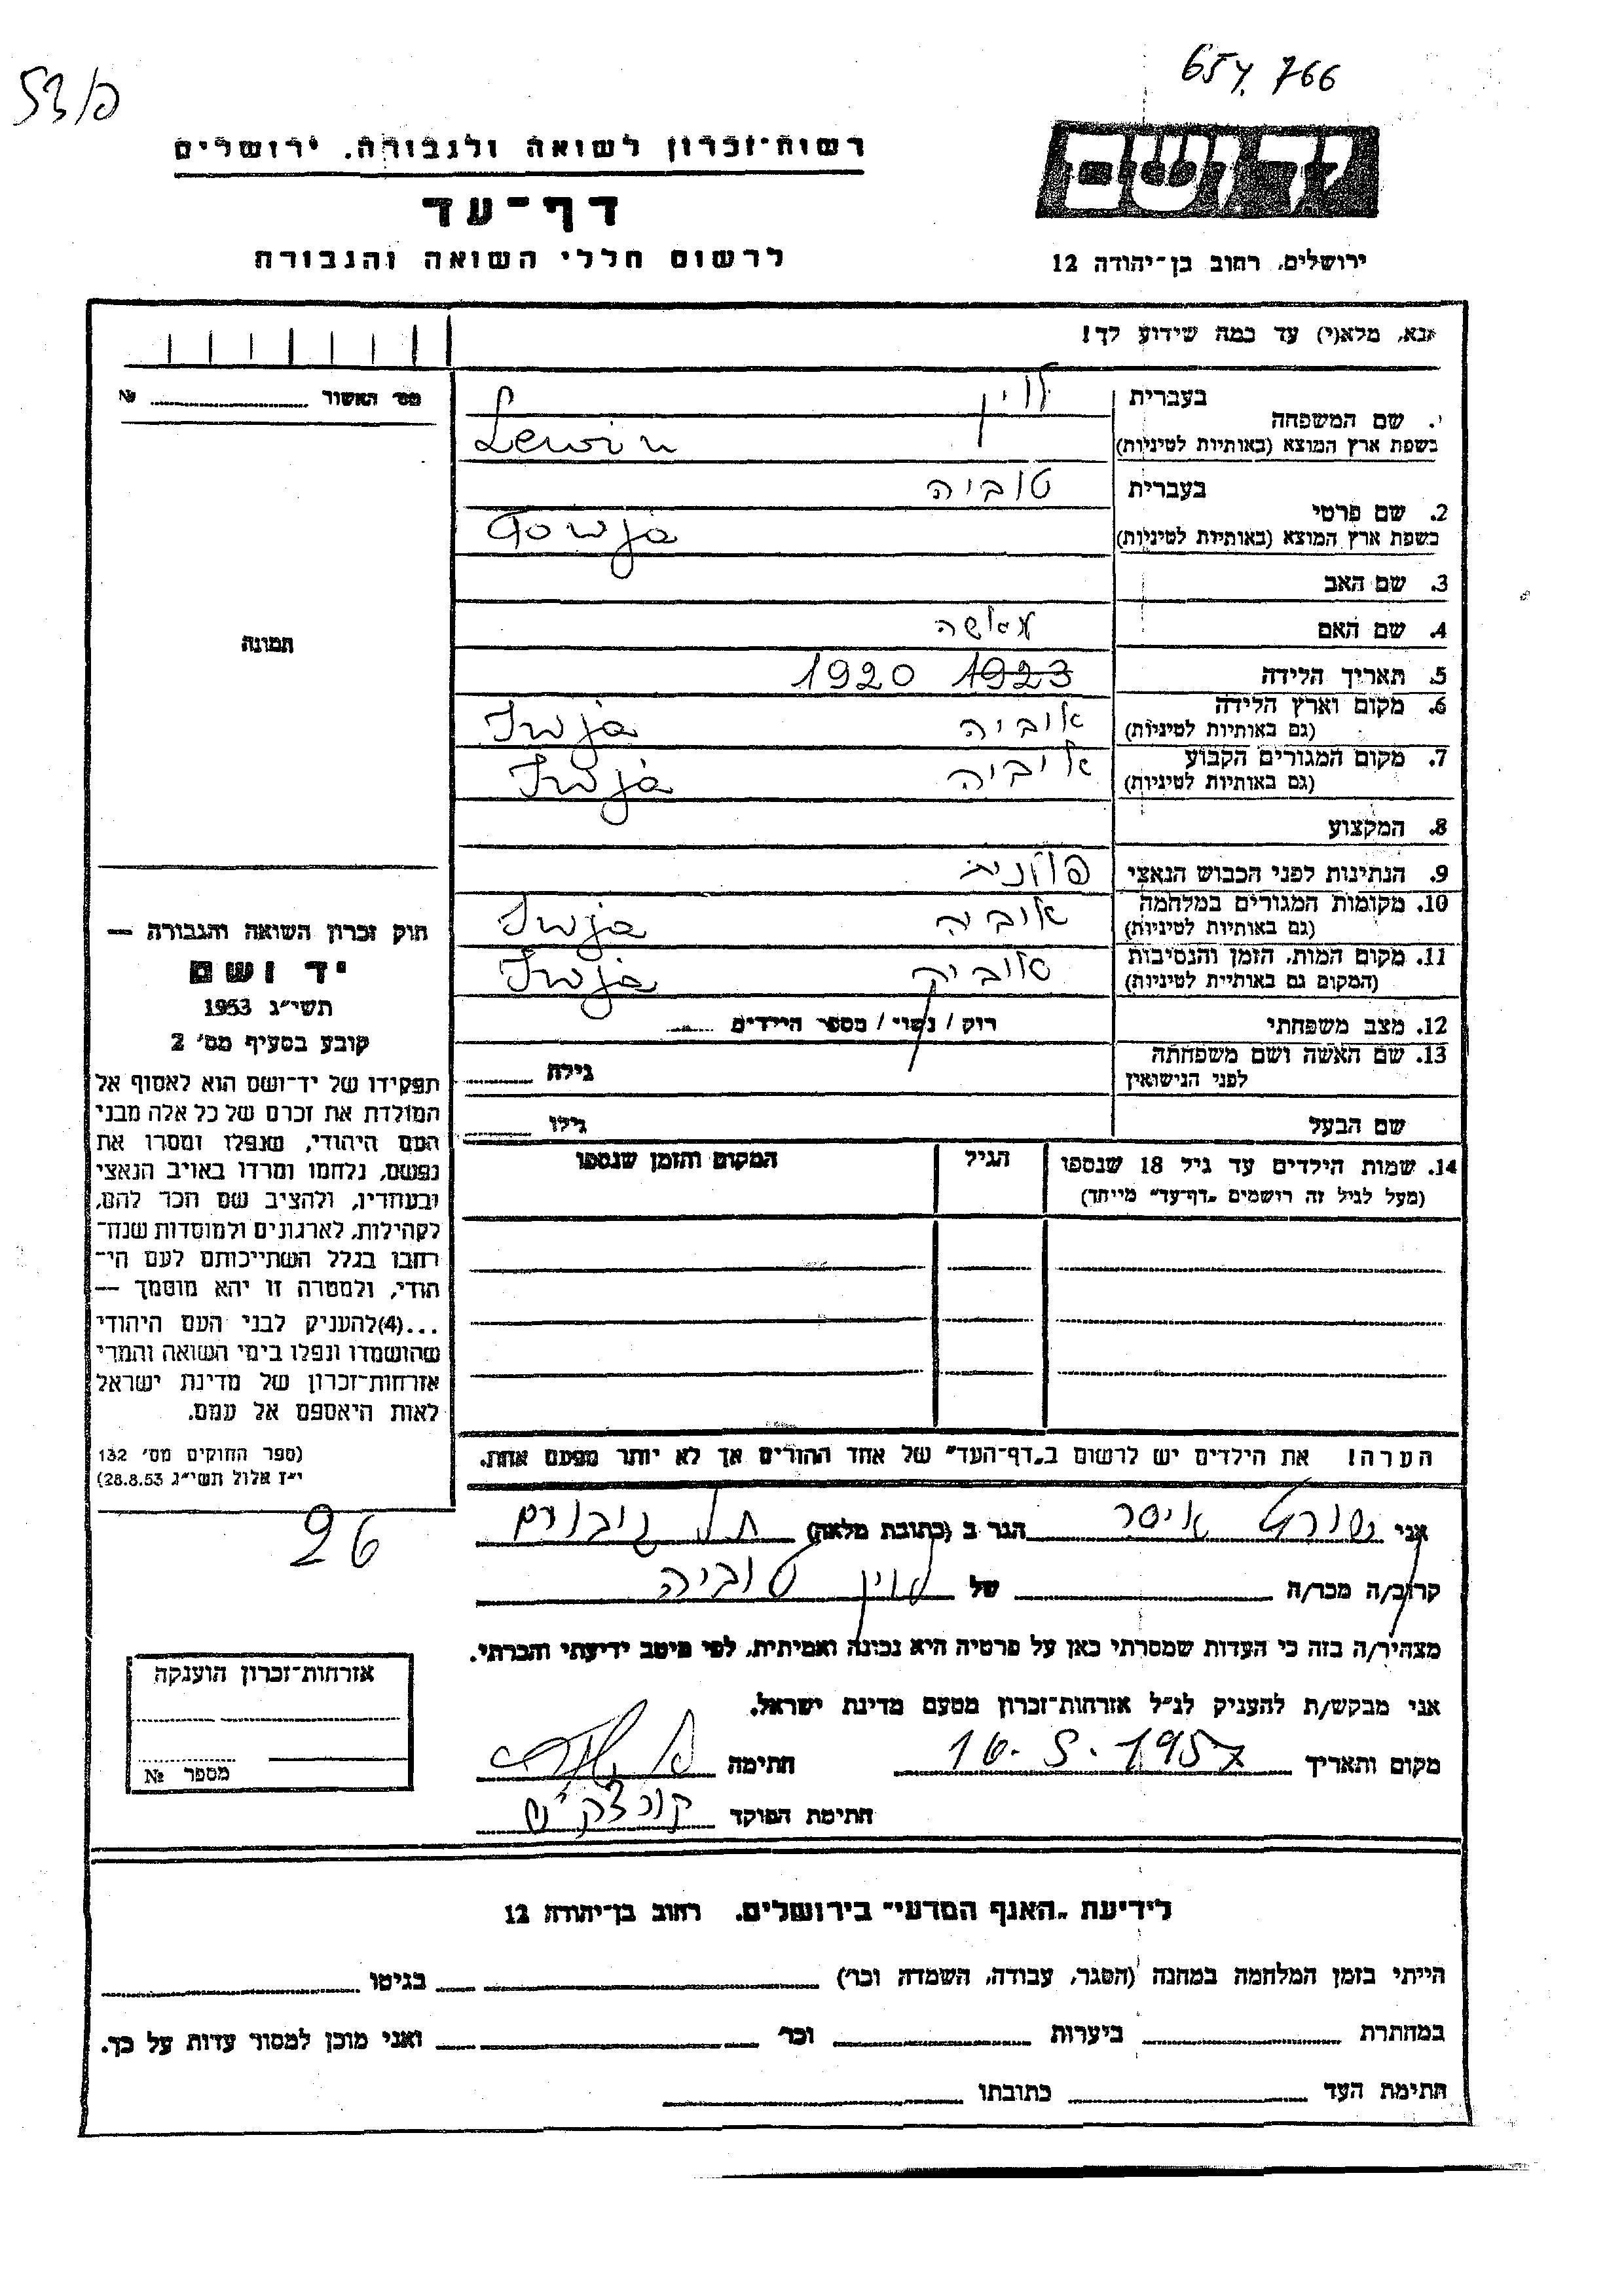 65y. 766
53/פ
ידושם
רשות־זכרון לשואה ולגבורה. ירושלים
דף־עד
לרשום חללי השואה והגבורה
ירושלים, רחוב בן־יהודה 12
נא, מלא(י) עד כמה שידוע לך!
מס׳ האשור № 
1. שם המשפחה
בעברית לוין
בשפת ארץ המוצא (באותיות לטיניות) Lewin
2. שם פרטי
בעברית טוביה
בשפת ארץ המוצא (באותיות לטיניות) Towja
3. שם האב
4. שם האם מאשה
5. תאריך הלידה 1923 1920
6. מקום וארץ הלידה (גם באותיות לטיניות) אוביה Iwja
7. מקום המגורים הקבוע (גם באותיות לטיניות) איביה Iwja
8. המקצוע
9. הנתינות לפני הכבוש הנאצי פולנית
10. מקומות המגורים במלחמה (גם באותיות לטיניות) אוביה Iwja
11. מקום המות, הזמן והנסיבות (המקום גם באותיות לטיניות) Iwja
12. מצב משפחתי רוק / נשוי / מספר הילדים
13. שם האשה ושם משפחתה לפני הנישואין גילה
שם הבעל גילו
14. שמות הילדים עד גיל 18 שנספו
(מעל לגיל זה רושמים „דף־עד" מייחד)
הגיל
המקום והזמן שנספו
הערה! את הילדים יש לרשום ב„דף־העד" של אחד ההורים אך לא יותר מפעם אחת.
תמונה
חוק זכרון השואה והגבורה —
יד ושם
תשי״ג 1953
קובע בסעיף מס׳ 2
תפקידו של יד־ושם הוא לאסוף אל
המולדת את זכרם של כל אלה מבני
העם היהודי, שנפלו ומסרו את
נפשם, נלחמו ומרדו באויב הנאצי
ובעוזריו, ולהציב שם וזכר להם,
לקהילות, לארגונים ולמוסדות שנח־
רבו בגלל השתייכותם לעם הי־
הודי, ולמטרה זו יהא מוסמך —
...(4) להעניק לבני העם היהודי
שהושמדו ונפלו בימי השואה והמרי
אזרחות־זכרון של מדינת ישראל
לאות היאספם אל עמם.
(ספר החוקים מס׳ 132
י״ז אלול תשי״ג 28.8.53)
26
אני איסר הגר ב (כתובת מלאה) תל גיבורים
קרוב/ה מכר/ה של לוין טוביה
מצהיר/ה בזה כי העדות שמסרתי כאן על פרטיה היא נכונה ואמיתית, לפי מיטב ידיעתי והכרתי.
אני מבקש/ת להעניק לנ״ל אזרחות־זכרון מטעם מדינת ישראל.
מקום ותאריך 16.5.1957 חתימה
חתימת הפוקד
אזרחות־זכרון הוענקה
מספר №
לידיעת „האגף המדעי" בירושלים. רחוב בן־יהודה 12
הייתי בזמן המלחמה במחנה (הסגר, עבודה, השמדה וכו׳) בגיטו
במחתרת ביערות וכו׳ ואני מוכן למסור עדות על כך.
חתימת העד כתובתו